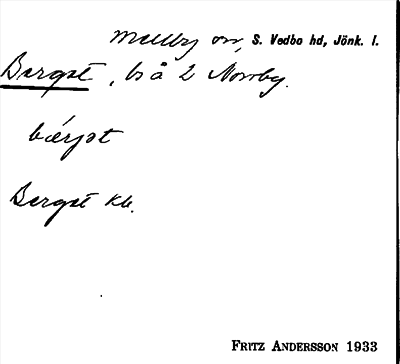 Mellby sn, S. Vedbo hd, Jönk. l.
Bergst, ls å 2 Norrby.
bærjst
Bergst kk.
FRITZ ANDERSSON 1933